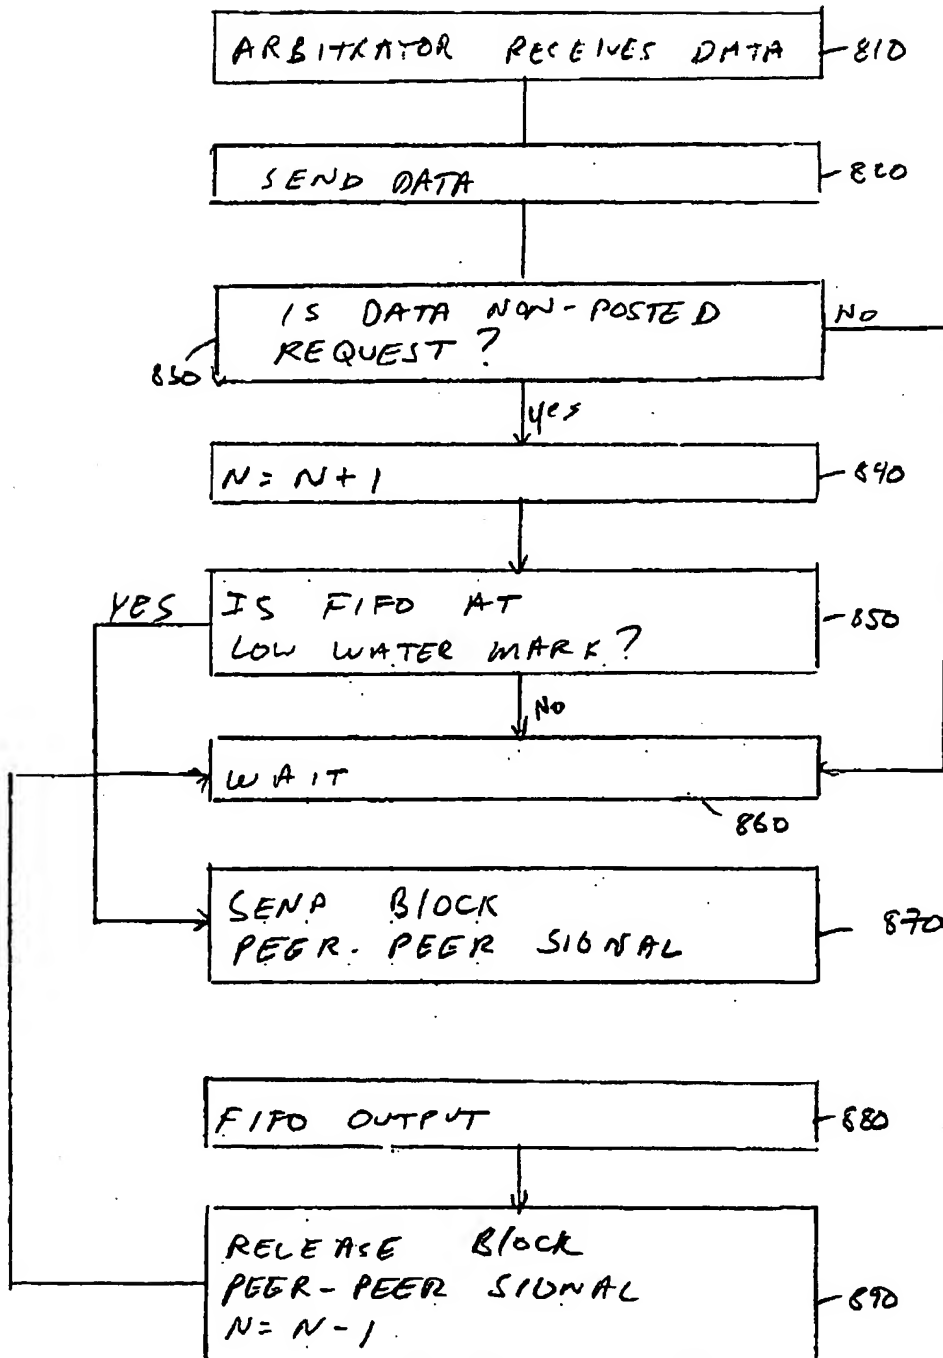 ARBITRATOR RECEIVES DATA 810
SEND DATA 820
IS DATA NON-POSTED NO
REQUEST?
830
yes
N = N + 1 840
YES IS FIFO AT 850
LOW WATER MARK?
No
WAIT
860
SEND BLOCK 870
PEER-PEER SIGNAL
FIFO OUTPUT 880
RELEASE BLOCK
PEER-PEER SIGNAL 890
N = N - 1